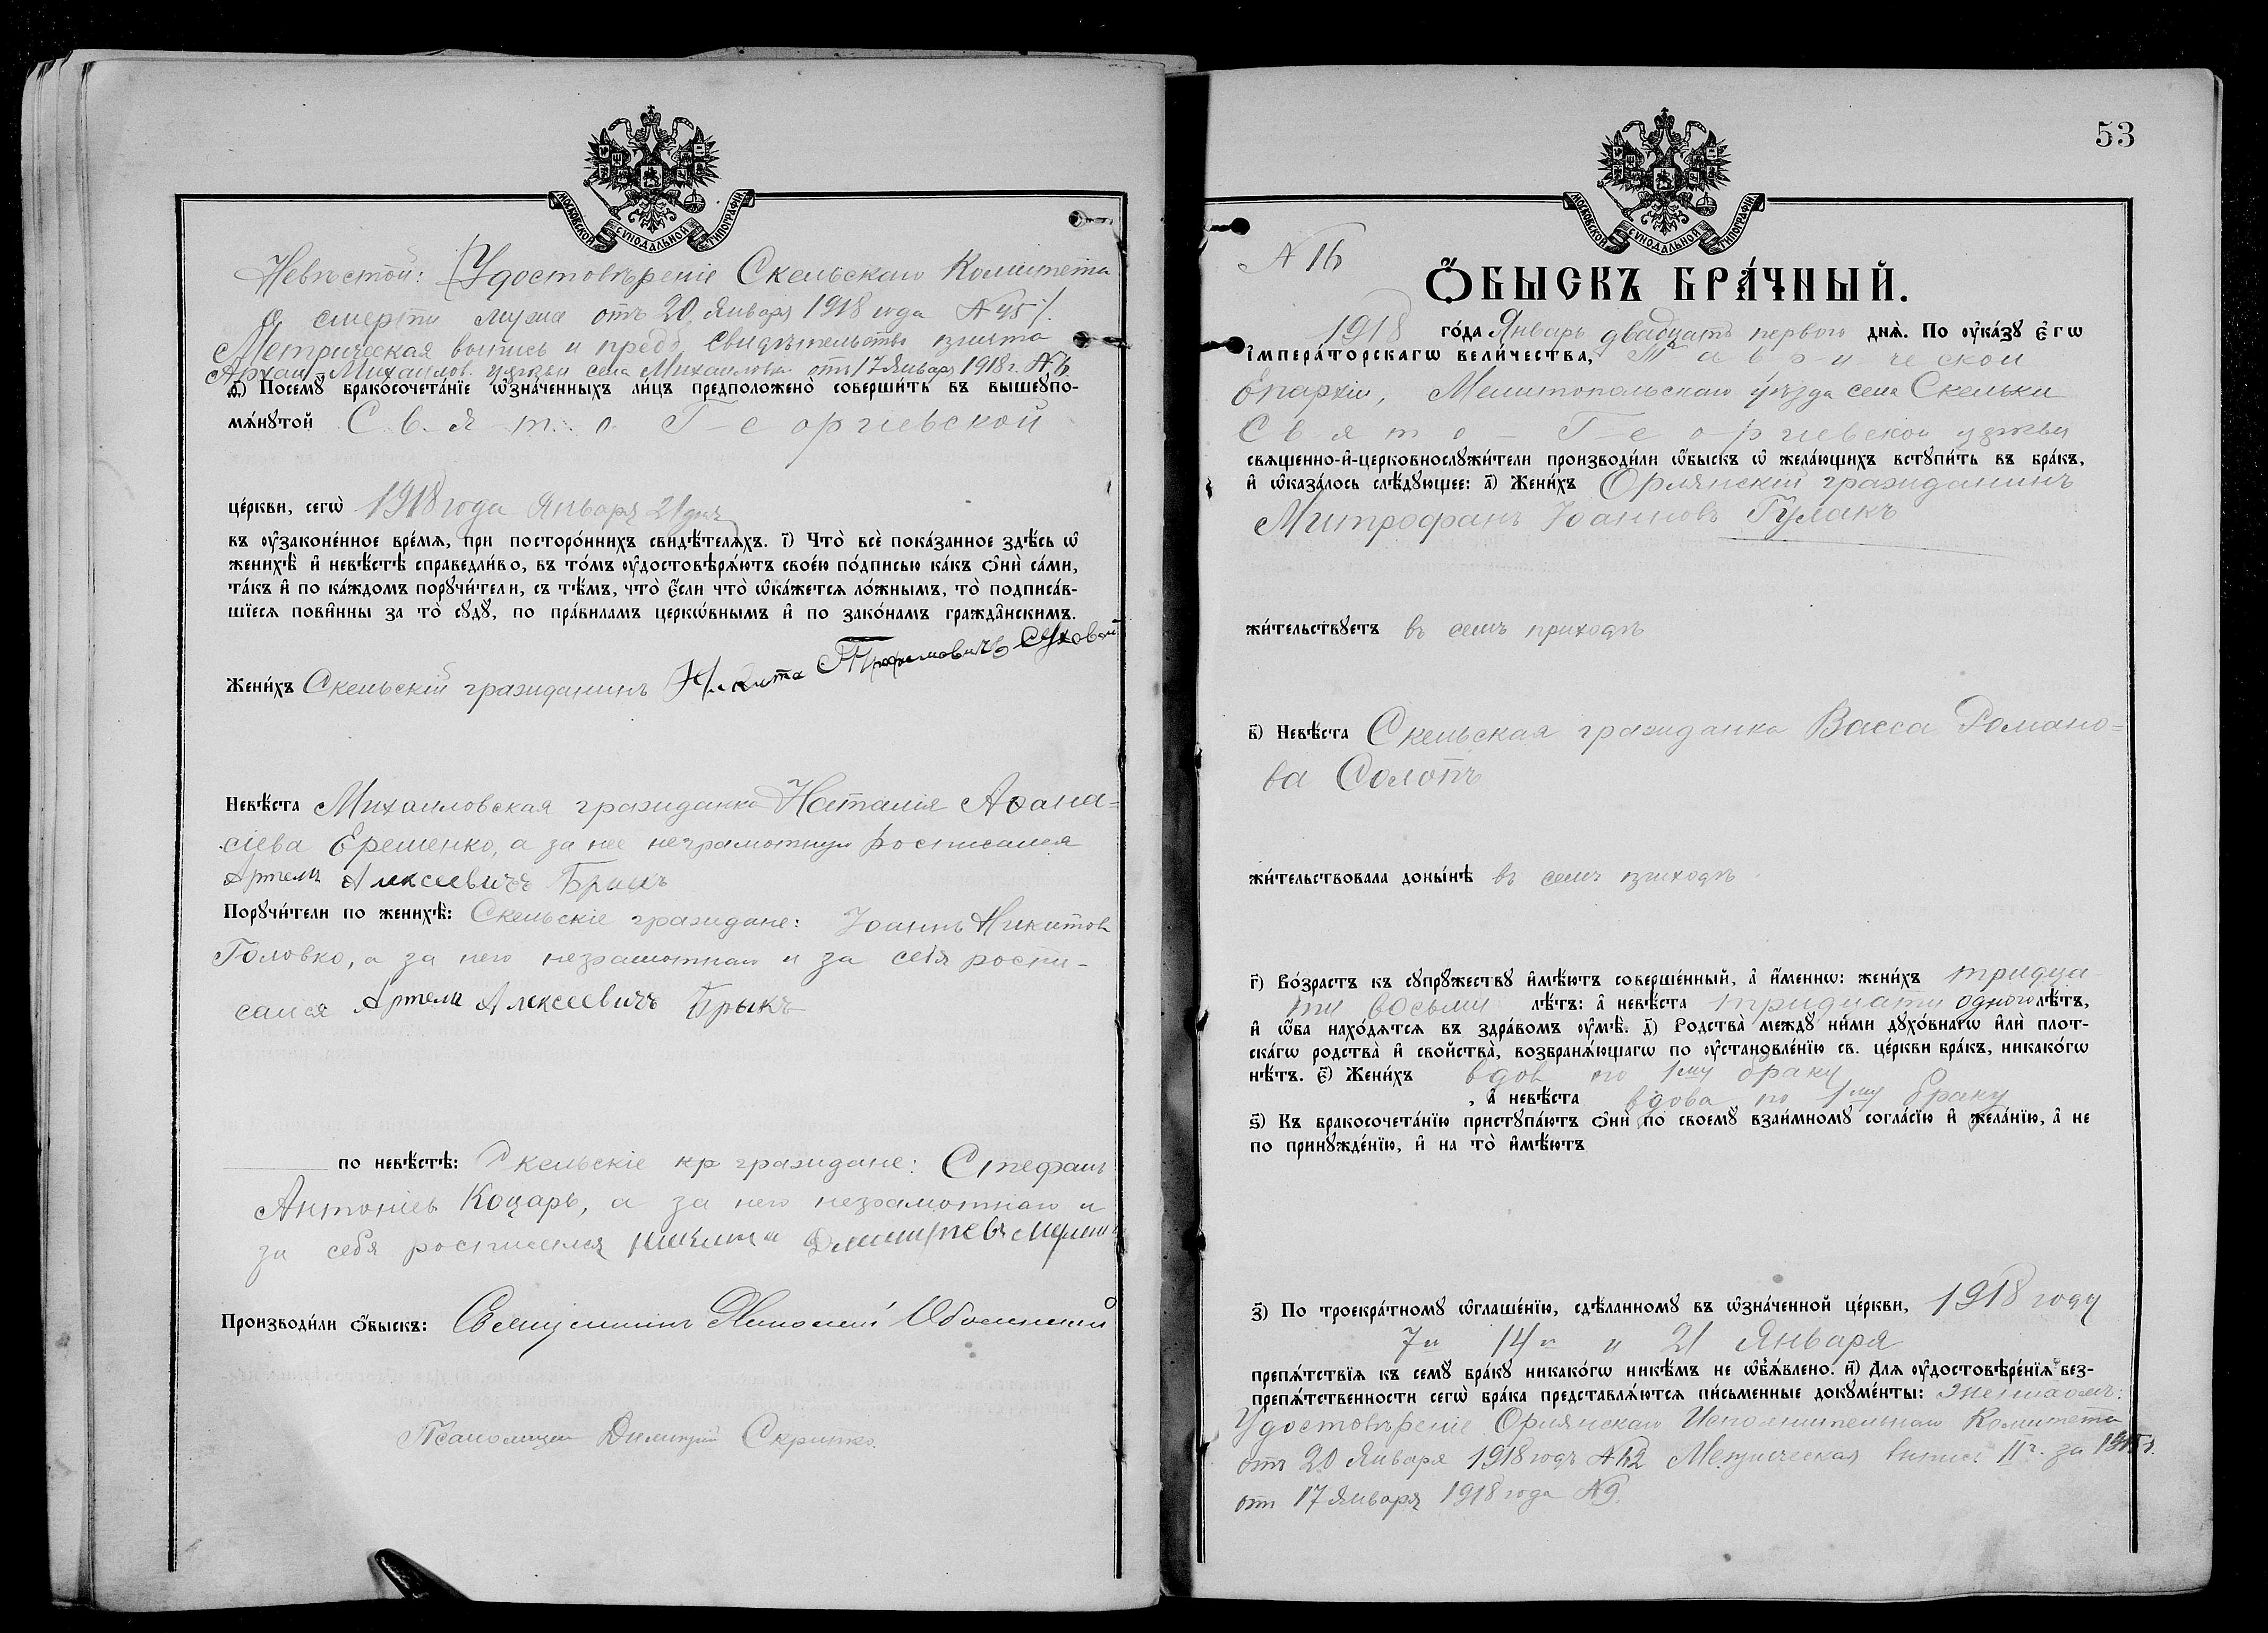 МОСКОВСКОЙ СѴНОДАЛЬНОЙ ТИПОГРАФІИ
Невѣстой: Удостовѣреніе Скельскаго Комитета
о смерти мужа отъ 20 Января 1918 года № 95
Метрическая выпись и предб. свидѣтельство
Архан-Михаилов. церкви села Михайловки отъ 17 Января 1918 г. № 6.
ѳ) Посемꙋ бракосочета́нїе ѡзна́ченныхъ ли́цъ предположено̀ соверши́ть въ вышеꙋпо-
мѧ́нꙋтой Свято-Георгіевской
це́ркви, сегѡ̀ 1918 года Января 21 дня
въ ᲂу҆зако́ненное вре́мѧ, при посторо́ннихъ свидѣ́телѧхъ. і) Что̀ всѐ пока́занное здѣ́сь ѡ҆
женихѣ̀ и҆ невѣ́стѣ справедли́во, въ то́мъ ᲂу҆достовѣрѧ́ютъ свое́ю по́дписью ка́къ ѻ҆нѝ са́ми,
та́къ и҆ по ка́ждомъ порꙋчи́тели, съ тѣ́мъ, что̀ є҆́сли что̀ ѡ҆ка́жетсѧ ло́жнымъ, то̀ подписа́в-
шїесѧ пови́нны за то̀ сꙋдꙋ̀, по пра́виламъ церкѡ́внымъ и҆ по зако́намъ гражда́нскимъ.
Жени́хъ Скельскій гражданинъ Никита Трофимовичъ Суховой
Невѣ́ста Михайловская гражданка Наталія Аѳана=
сіева Ерешенко, а за нее неграмотную росписался
Артемъ Алексеевичъ Брыкъ
Порꙋчи́тели по женихѣ̀: Скельскіе граждане: Іоаннъ Никитов
Головко, а за него неграмотнаго и за себя роспи-
сался Артемъ Алексеевичъ Брыкъ
по невѣ́стѣ: Скельскіе кр граждане: Стефанъ
Антоніев Коцарь, а за него неграмотнаго и
за себя росписался Никита
Производи́ли ѻ҆́быскъ: Священникъ Николай
Псаломщик Димитрій Скрипко.
53
МОСКОВСКОЙ СѴНОДАЛЬНОЙ ТИПОГРАФІИ
№ 16
Ѻ҆́БЫСКЪ БРА́ЧНЫЙ.
1918 го́да Январь двадцать перваго днѧ̀. По ᲂу҆ка́зꙋ є҆гѡ̀
і҆мпера́торскагѡ вели́чества, Таврической
Епархіи, Мелитопольскаго уѣзда села Скельки
Свято-Георгіевской церкви
свѧщенно-и҆-церковнослꙋжи́тели производи́ли ѡ҆́быскъ ѡ҆ жела́ющихъ встꙋпи́ть въ бра́къ,
и҆ ѡ҆каза́лось слѣ́дꙋющее: а҃) Жени́хъ Орлянскій гражданинъ
Митрофанъ Іоанновъ Гулакъ
жи́тельствꙋетъ въ семъ приходѣ
в҃) Невѣ́ста Скельская гражданка Васса Романо=
ва Солопъ
жи́тельствовала доны́нѣ въ семъ приходѣ
г҃) Во́зрастъ къ сꙋпрꙋ́жествꙋ и҆мѣ́ютъ соверше́нный, а҆ и҆́меннѡ: жени́хъ тридца
ти восьми лѣ́тъ: а҆ невѣ́ста тридцати одного лѣ́тъ,
и҆ ѻ҆́ба нахо́дѧтсѧ въ здра́вомъ ᲂу҆мѣ̀. д҃) Родства̀ междꙋ̀ ни́ми дꙋхо́внагѡ и҆лѝ плот-
ска́гѡ родства̀ и҆ сво́йства̀, возбранѧ́ющагѡ по ᲂу҆становле́нїю св. це́ркви бра́къ, никако́гѡ
нѣ́тъ. є҃) Жени́хъ вдов по 1му браку
, а҆ невѣ́ста вдова по 1му браку
ѕ҃) Къ бракосочета́нїю пристꙋпа́ютъ ѻ҆нѝ по своемꙋ̀ взаи́мномꙋ согла́сїю и҆ жела́нїю, а҆ не
по принꙋжде́нїю, и҆ на то̀ и҆мѣ́ютъ
з҃) По троекра́тномꙋ ѡ҆глаше́нїю, сдѣ́ланномꙋ въ ѡ҆зна́ченной це́ркви, 1918 году
7го 14го и 21 Января
препѧ́тствїѧ къ семꙋ̀ бра́кꙋ никако́гѡ никѣ́мъ не ѡ҆бъѧ́влено. и҃) Длѧ ᲂу҆достовѣре́нїѧ без-
препѧ́тственности сегѡ̀ бра́ка представлѧ́ютсѧ пи́сьменные докꙋме́нты: Женихомъ:
Удостовѣреніе Орлянскаго Исполнительнаго Комитета
отъ 20 Января 1918 годъ № 42 Метрическая выпись II ч. за
отъ 17 Января 1918 года № 9.